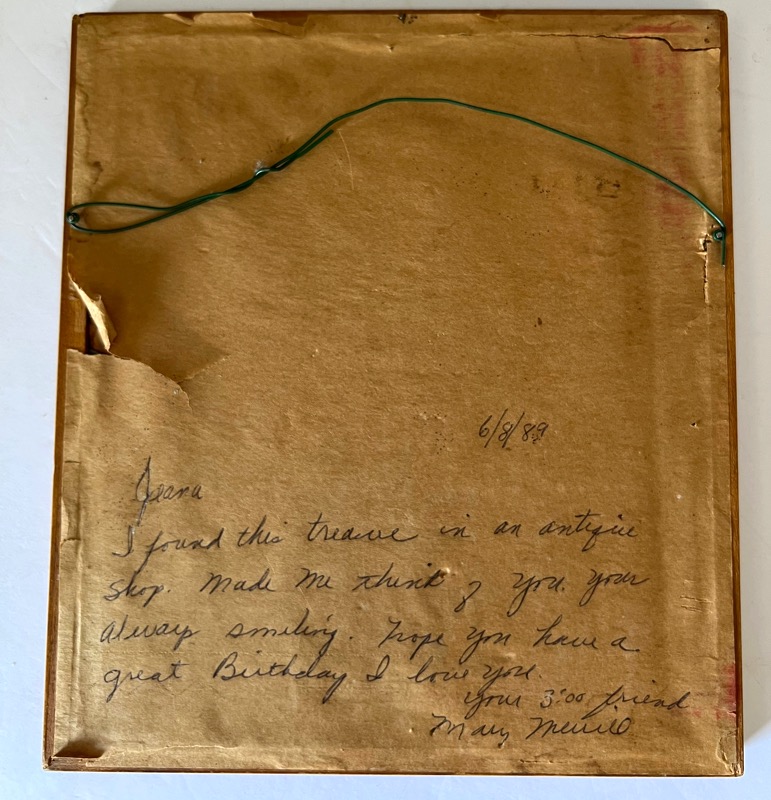 6/8/89
Jeana
I found this treasure in an antique
shop. Made me think of you. Your
always smiling. hope you have a
great Birthday I love you.
your 3:00 friend
Mary Merrill